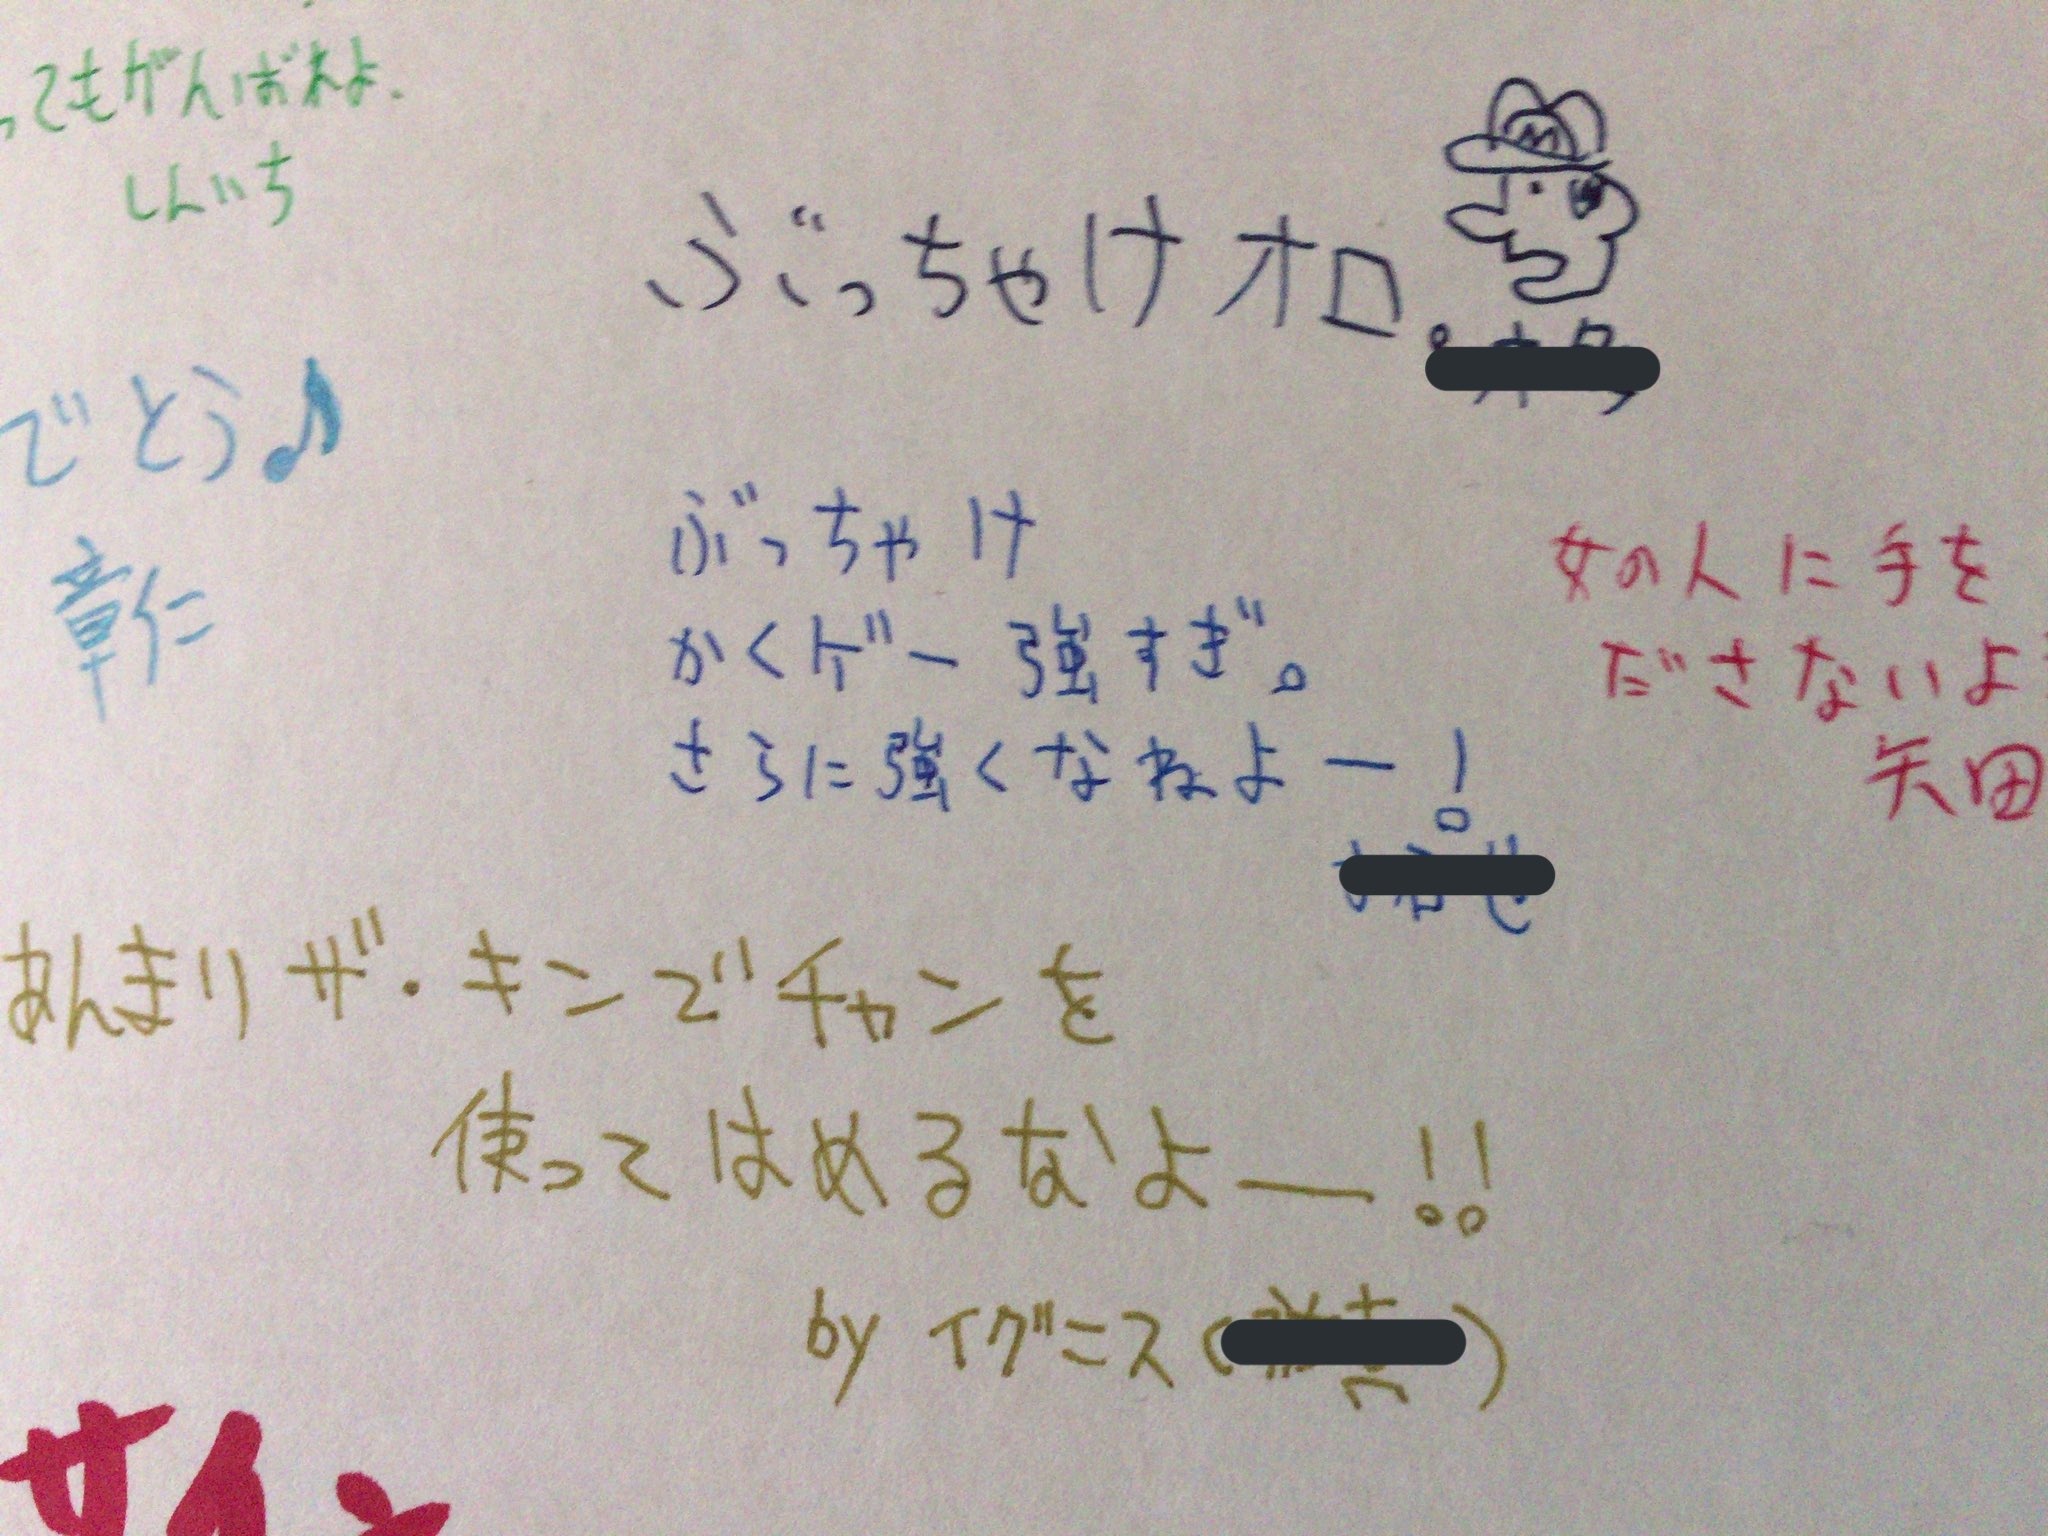 ってもがんばれよ.
しんいち
ぶっちゃけオロ。
M
でとう♪
章仁
ぶっちゃけ
かくゲー強すぎ。
さらに強くなれよー!
女の人に手を
ださないよ
矢田
あんまりザ・キンでチャンを
使ってはめるなよー!!
by イグニス( )